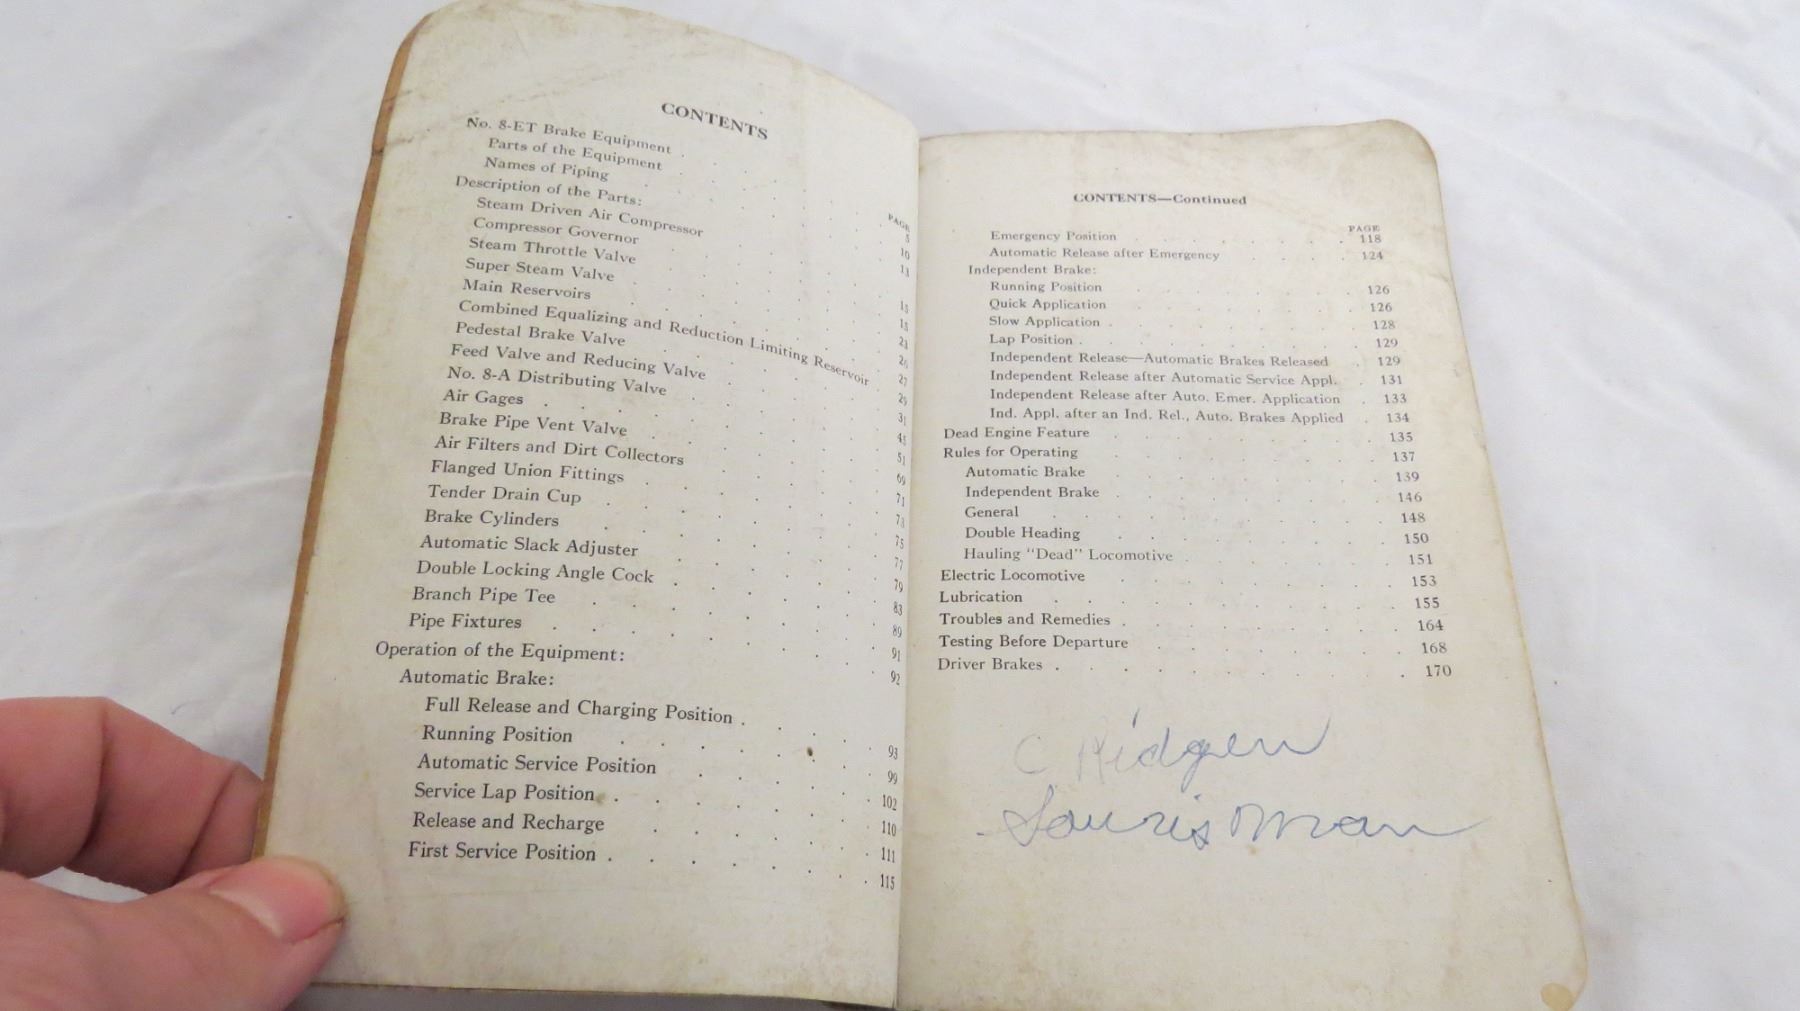 CONTENTS
PAGE
No. 8-ET Brake Equipment . 5
Parts of the Equipment . 10
Names of Piping
Description of the Parts:
Steam Driven Air Compressor
Compressor Governor
Steam Throttle Valve
Super Steam Valve . 26
Main Reservoirs . 27
Combined Equalizing and Reduction Limiting Reservoir . 29
Pedestal Brake Valve . 31
Feed Valve and Reducing Valve
No. 8-A Distributing Valve . 51
Air Gages . 69
Brake Pipe Vent Valve . 71
Air Filters and Dirt Collectors . 73
Flanged Union Fittings . 75
Tender Drain Cup . 77
Brake Cylinders . 79
Automatic Slack Adjuster . 83
Double Locking Angle Cock . 89
Branch Pipe Tee . 91
Pipe Fixtures . 92
Operation of the Equipment:
Automatic Brake:
Full Release and Charging Position . 93
Running Position . 99
Automatic Service Position . 102
Service Lap Position . 110
Release and Recharge . 111
First Service Position . 115
CONTENTS—Continued
PAGE
Emergency Position . 118
Automatic Release after Emergency . 124
Independent Brake:
Running Position . 126
Quick Application . 126
Slow Application . 128
Lap Position . 129
Independent Release—Automatic Brakes Released . 129
Independent Release after Automatic Service Appl. . 131
Independent Release after Auto. Emer. Application . 133
Ind. Appl. after an Ind. Rel., Auto. Brakes Applied . 134
Dead Engine Feature . 135
Rules for Operating . 137
Automatic Brake . 139
Independent Brake . 146
General . 148
Double Heading . 150
Hauling "Dead" Locomotive . 151
Electric Locomotive . 153
Lubrication . 155
Troubles and Remedies . 164
Testing Before Departure . 168
Driver Brakes . 170
C Ridgen